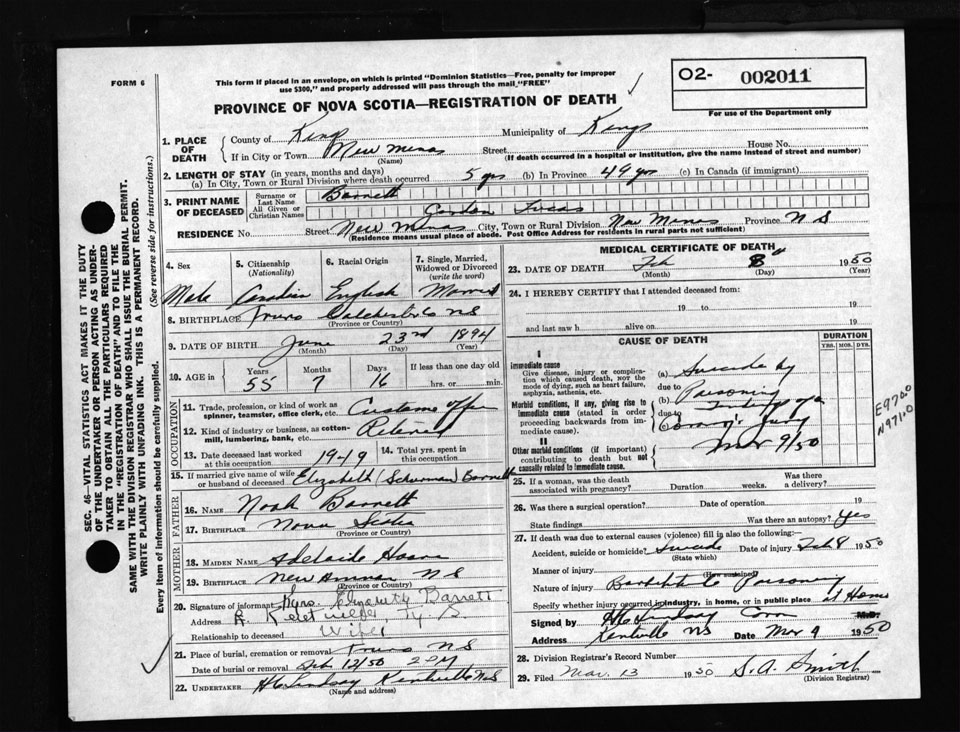 FORM 6
This form if placed in an envelope, on which is printed "Dominion Statistics—Free, penalty for improper
use $300," and properly addressed will pass through the mail "FREE"
PROVINCE OF NOVA SCOTIA—REGISTRATION OF DEATH
O2- 002011
For use of the Department only
SEC. 46—VITAL STATISTICS ACT MAKES IT THE DUTY
OF THE UNDERTAKER OR PERSON ACTING AS UNDER-
TAKER TO OBTAIN ALL THE PARTICULARS REQUIRED
IN THE "REGISTRATION OF DEATH" AND TO FILE THE
SAME WITH THE DIVISION REGISTRAR WHO SHALL ISSUE THE BURIAL PERMIT.
WRITE PLAINLY WITH UNFADING INK. THIS IS A PERMANENT RECORD.
Every item of information should be carefully supplied. (See reverse side for instructions.)
1. PLACE OF DEATH
County of Kings Municipality of Kings
If in City or Town New Minas Street House No.
(Name) (If death occurred in a hospital or institution, give the name instead of street and number)
2. LENGTH OF STAY (in years, months and days)
(a) In City, Town or Rural Division where death occurred 5 yrs (b) In Province 49 yrs (c) In Canada (if immigrant)
3. PRINT NAME OF DECEASED
Surname or Last Name Barnett
All Given or Christian Names Gordon Lucas
RESIDENCE No. Street New Minas City, Town or Rural Division New Minas Province N S
(Residence means usual place of abode. Post Office Address for residents in rural parts not sufficient)
4. Sex 5. Citizenship (Nationality) 6. Racial Origin 7. Single, Married, Widowed or Divorced (write the word)
Male Canadian English Married
8. BIRTHPLACE Truro Colchester Co NS
(Province or Country)
9. DATE OF BIRTH June 23rd 1894
(Month) (Day) (Year)
10. AGE in Years Months Days If less than one day old
55 7 16 hrs. or min.
OCCUPATION
11. Trade, profession, or kind of work as spinner, teamster, office clerk, etc. Customs offcer
12. Kind of industry or business, as cotton-mill, lumbering, bank, etc. Retired
13. Date deceased last worked at this occupation 1949 14. Total yrs. spent in this occupation
15. If married give name of wife or husband of deceased Elizabeth (Schurman) Barnett
FATHER
16. NAME Noah Barnett
17. BIRTHPLACE Nova Scotia
(Province or Country)
MOTHER
18. MAIDEN NAME Adelaide
19. BIRTHPLACE New Annan N S
(Province or Country)
20. Signature of informant Mrs. Elizabeth Barrett
Address
Relationship to deceased Wife
21. Place of burial, cremation or removal Truro N S
Date of burial or removal Feb 12/50 2 PM
22. UNDERTAKER H C Lindsay Kentville N S
(Name and address)
MEDICAL CERTIFICATE OF DEATH
23. DATE OF DEATH Feb 8 1950
(Month) (Day) (Year)
24. I HEREBY CERTIFY that I attended deceased from:
19 to 19
and last saw h alive on 19
CAUSE OF DEATH DURATION
YRS. MOS. DYS.
I
Immediate cause
Give disease, injury or complication which caused death, not the mode of dying, such as heart failure, asphyxia, asthenia, etc.
(a) Suicide by
due to
(b) Poisoning
Morbid conditions, if any, giving rise to immediate cause (stated in order proceeding backwards from immediate cause).
due to
(c) Jury
Mar 9/50
II
Other morbid conditions (if important) contributing to death but not causally related to immediate cause.
E970.0
N971.0
25. If a woman, was the death associated with pregnancy? Duration weeks. Was there a delivery?
26. Was there a surgical operation? Date of operation 19
State findings Was there an autopsy? Yes
27. If death was due to external causes (violence) fill in also the following:
Accident, suicide or homicide? Suicide Date of injury Feb 8 1950
(State which)
Manner of injury
(How sustained)
Nature of injury Poisoning
Specify whether injury occurred in industry, in home, or in public place at Home
Signed by H C Lindsay Cor M.D.
Address Kentville NS Date Mar 9 1950
28. Division Registrar's Record Number
29. Filed Mar. 13 1950 S. A. Smith
(Division Registrar)